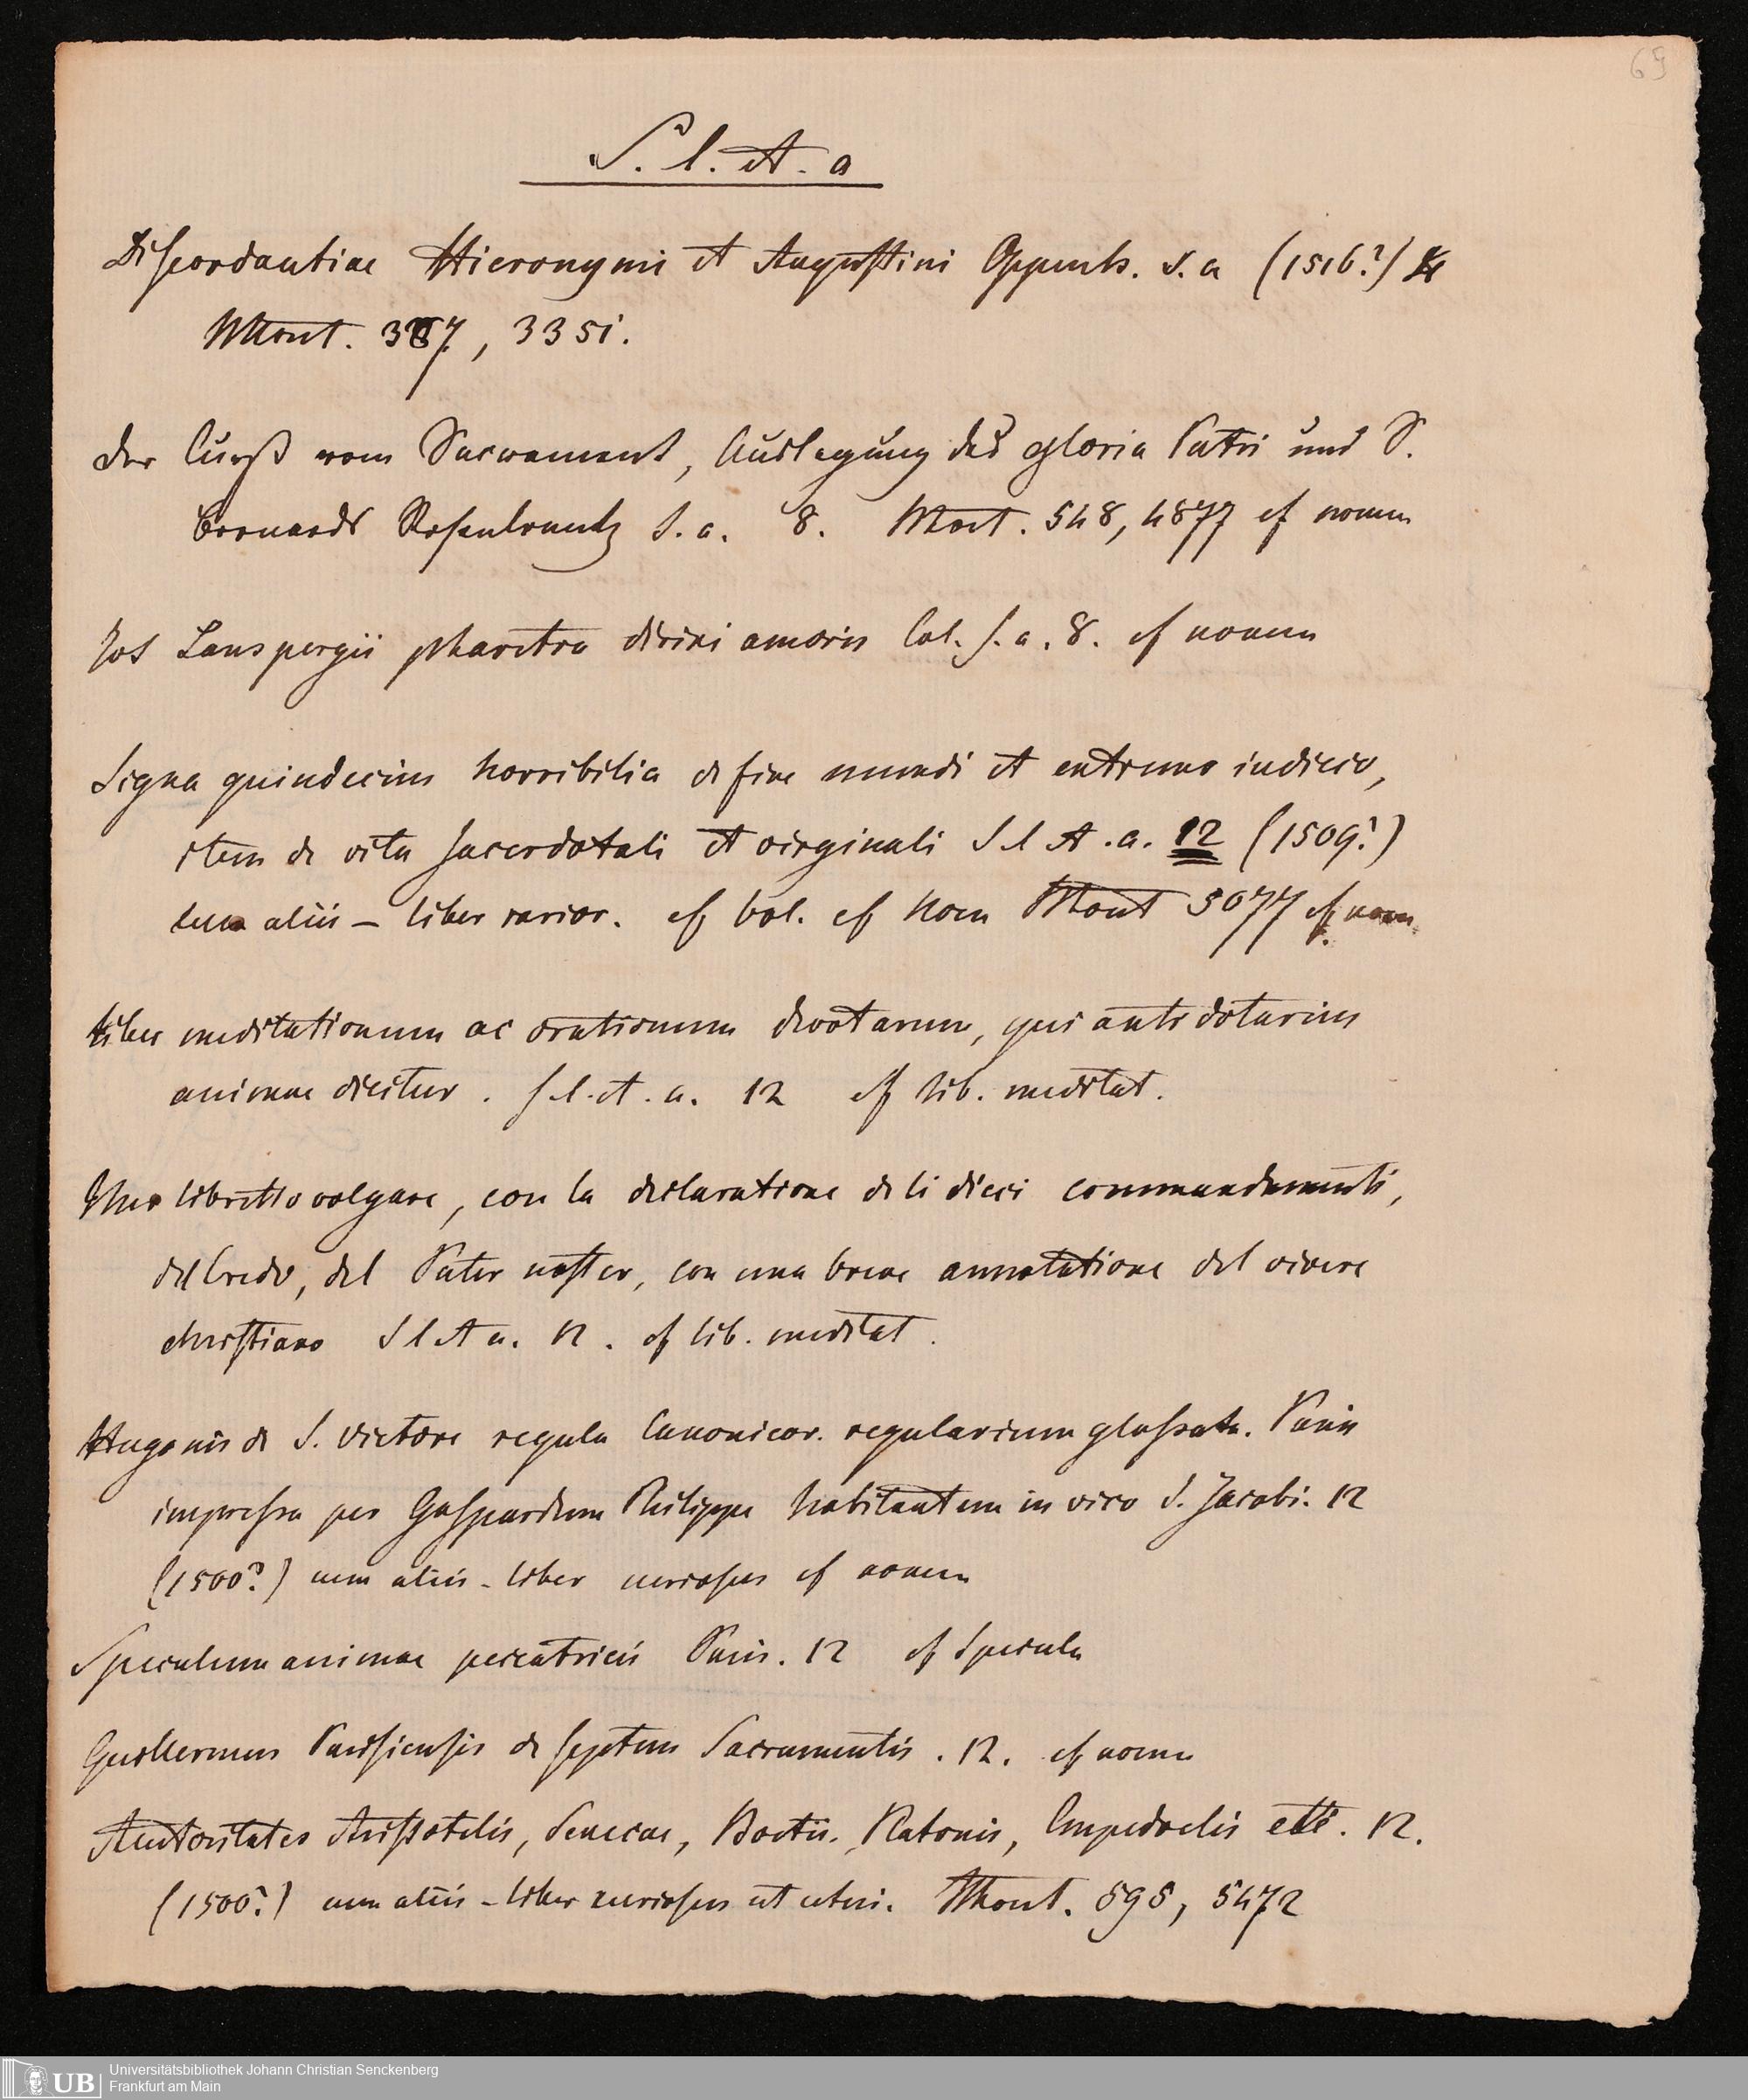 69
S. l. et. a
Discordantiae Hieronymi et Augustini Oppenh. s. a (1516?)
Mont. 387, 3351.
der Curß vom Sacrament, Auslegung des gloria Patri und S.
Bernards Rosenkrantz s. a. 8. Mont. 548, 4877 cf nomen
Jos Lanspergii pharetra divini amoris Col. s. a. 8. cf nomen
Signa quindecim horribilia de fine mundi et extremo iudicio,
item de vita sacerdotali et virginali S l et. a. 12 (1509?)
cum aliis – liber rarior. cf Vol. cf Mont 3077 cf nomen
Liber meditationum ac orationum devotarum, qui antidotarius
animae dicitur. s. l. et. a. 12 cf lib. meditat.
Uno libretto volgare, con la declaratione de li dieci commandamenti,
del Credo, del Pater noster, con una breve annotatione del vivere
christiano S l et a. 12. cf lib. meditat.
Hugonis de S. Victore regula Canonicor. regularium glossata. Paris
impressa per Gaspardum Philippe habitantem in vico S. Jacobi. 12
(1500?) cum aliis – liber curiosus cf nomen
Speculum animae peccatricis Paris. 12 cf Specula
Guillermus Parisiensis de septem Sacramentis. 12. cf nomen
Autoritates Aristotelis, Senecae, Boetii, Platonis, Empedoclis etc. 12.
(1500?) cum aliis – liber curiosus ut ceteri. Mont. 595, 5472
UB
Universitätsbibliothek Johann Christian Senckenberg
Frankfurt am Main